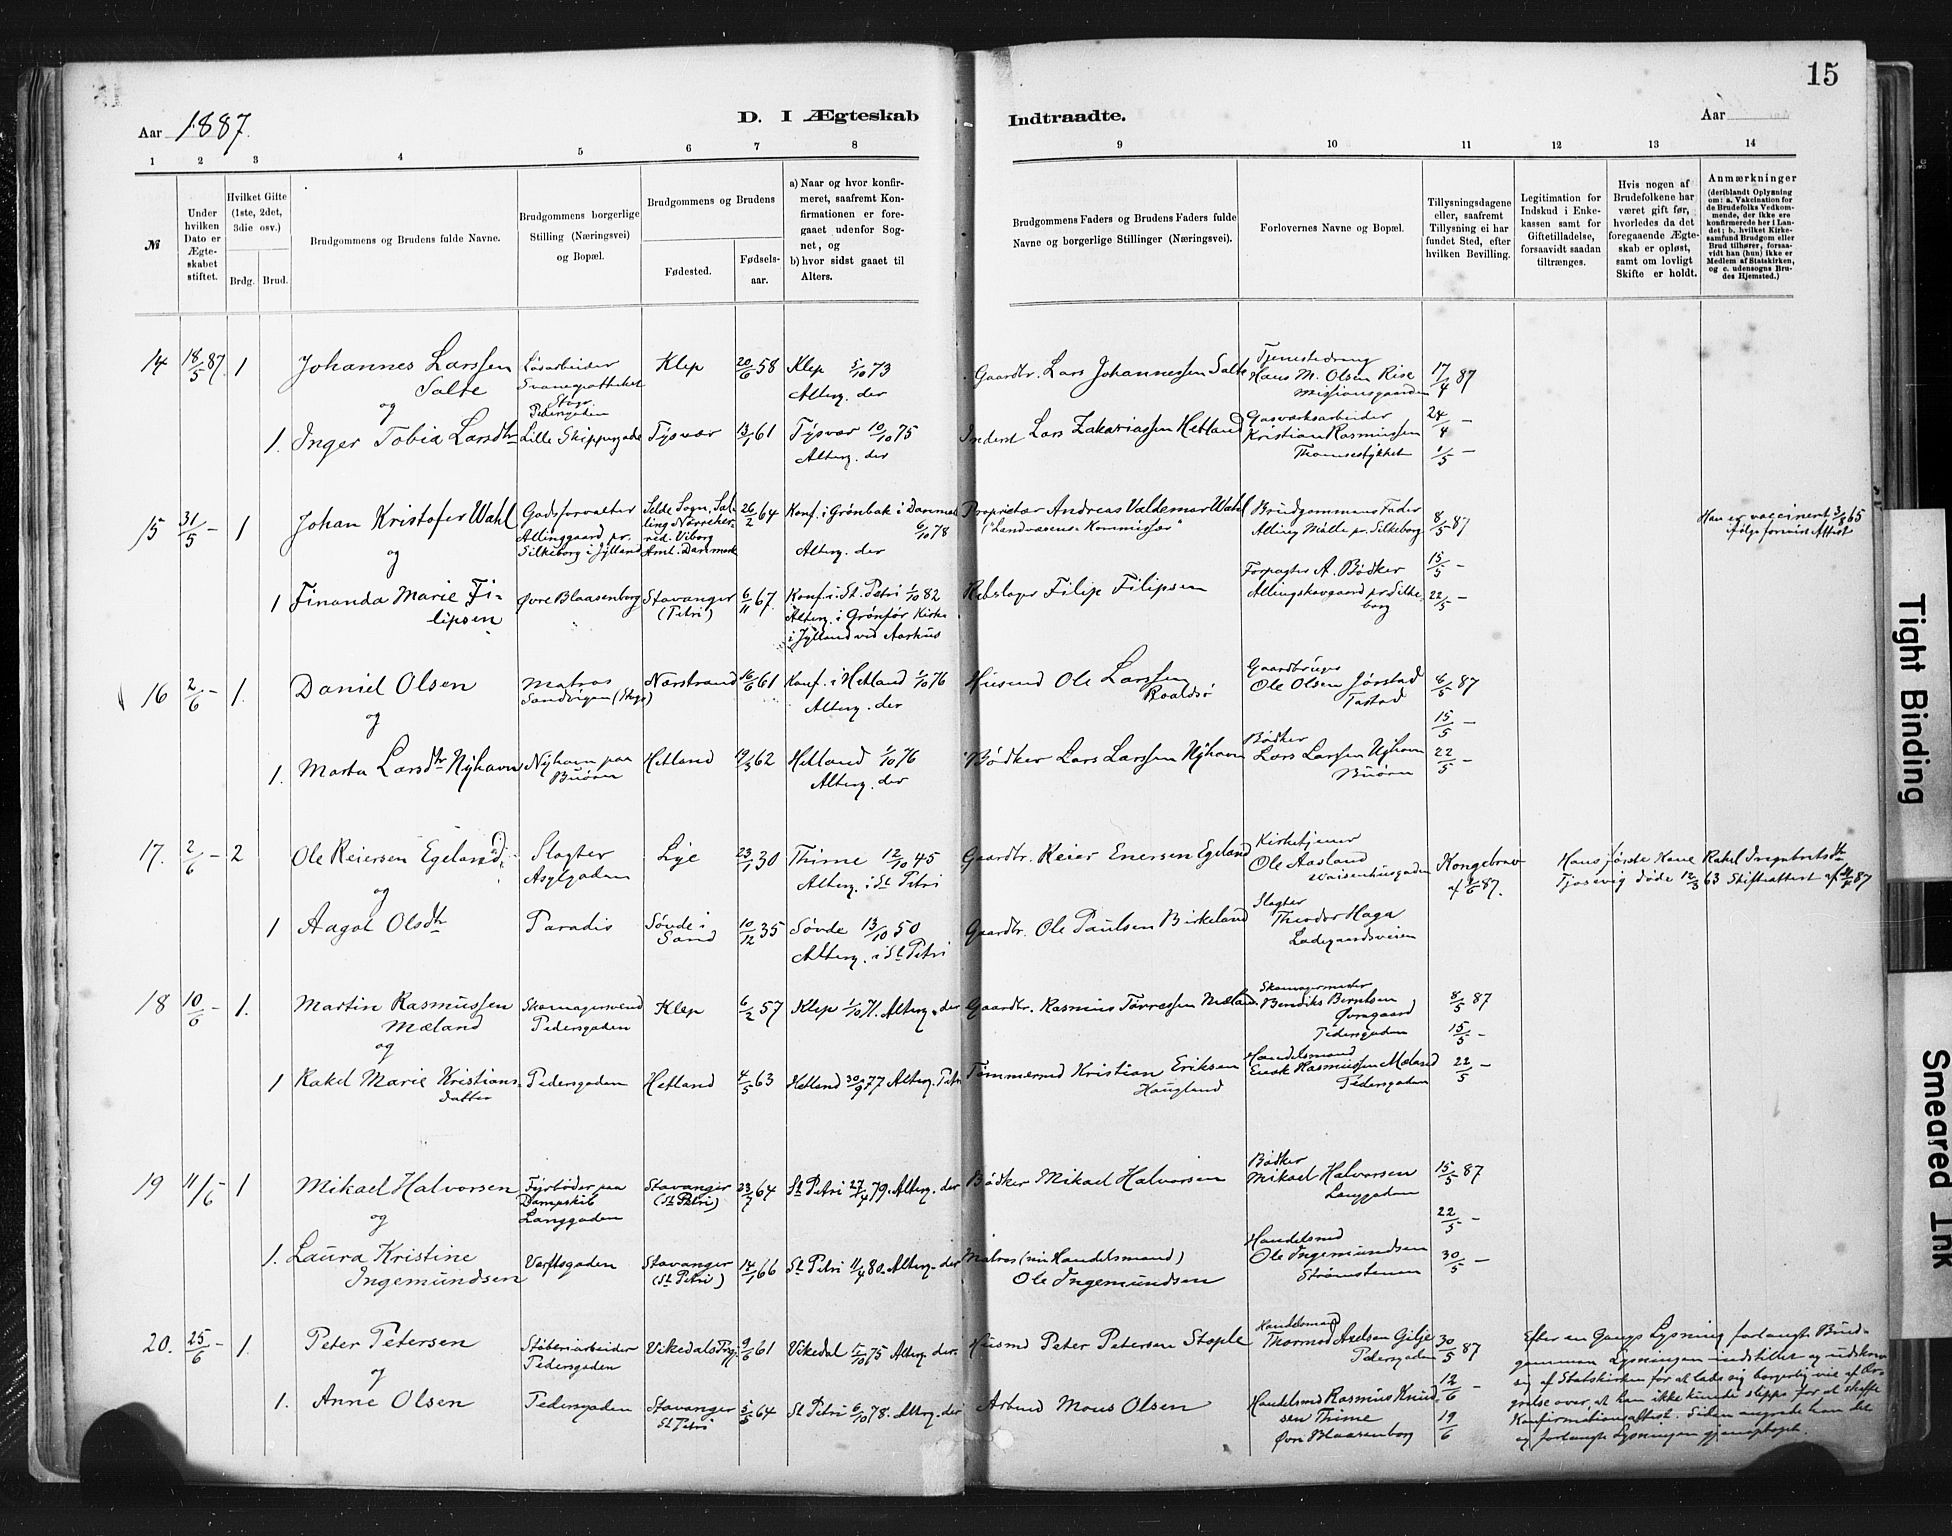 15
Aar 1887.
D. I Ægteskab Indtraadte.
Aar
1 2 3 4 5 6 7 8 9 10 11 12 13 14
№
Under hvilken Dato er Ægteskabet stiftet.
Hvilket Gifte (1ste, 2det, 3die osv.)
Brdg. Brud.
Brudgommens og Brudens fulde Navne.
Brudgommens borgerlige Stilling (Næringsvei) og Bopæl.
Brudgommens og Brudens
Fødested.
Fødselsaar.
a) Naar og hvor konfirmeret, saafremt Konfirmationen er foregaaet udenfor Sognet, og
b) hvor sidst gaaet til Alters.
Brudgommens Faders og Brudens Faders fulde Navne og borgerlige Stillinger (Næringsvei).
Forlovernes Navne og Bopæl.
Tillysningsdagene eller, saafremt Tillysning ei har fundet Sted, efter hvilken Bevilling.
Legitimation for Indskud i Enkekassen samt for Giftetilladelse, forsaavidt saadan tiltrænges.
Hvis nogen af Brudefolkene har været gift før, hvorledes da det foregaaende Ægteskab er opløst, samt om lovligt Skifte er holdt.
Anmærkninger
(deriblandt Oplysning om: a. Vakcination for de Brudefolks Vedkommende, der ikke ere konfirmerede her i Landet; b. hvilket Kirkesamfund Brudgom eller Brud tilhører, forsaavidt han (hun) ikke er Medlem af Statskirken, og c. udensogns Brudes Hjemsted.)
14 18/5 87. 1 Johannes Larssen Salte
Løsarbeider Svaneapotheket Stavr. Pedersgaden
Klep 20/6 58 Klep 5/10 73 Alterg. der
Gaardbr. Lars Johannessen Salte
Tjenestedreng Hans M. Olsen Rise Missionsgaarden
17/4 87
og
1. Inger Tobia Larsdtr
Lille Skippergade Tysvær 13/1 61 Tysvær 10/10 75 Alterg. der
Inderst Lars Zakariassen Hetland
Gasværksarbeider Kristian Rasmussen
24/4 –
1/5 –
15 31/5 – 1 Johan Kristofer Wahl
Godsforvalter Allinggaard pr. Silkeborg i Jylland
Selde Sogn, Salling Nørreherred. Viborg Amt. Danmark
26/2 64 Konf. i Grønbæk i Danmark 6/10 78
Alterg. der
Proprietær Andreas Valdemar Wahl
"Landvæsens-Kommissær"
Brudgommens Fader Alling Mølle pr. Silkeborg
8/5 87
Han er vaccineret 3/8 65 ifølge forevist Attest
og
1 Finanda Marie Filipsen
Øvre Blaasenborg Stavanger (Petri) 6/11 67. Konf. i St. Petri 1/10 82
Alterg. i Grønfør Kirke i Jylland ved Aarhus
Rebslager Filip Filipsen
Forpagter A. Bødker Allingskovgaard pr Silkeborg
15/5 –
22/5 –
16 2/6 – 1. Daniel Olsen
Matros Sandvigen (Stvgr)
Nærstrand 16/6 61 Konf. i Hetland 1/10 76
Alterg. der
Husmd Ole Larssen Roaldsø
Gaardbruger Ole Olsen Jørstad Tastad
8/5 87
og
15/5 –
1. Marta Larsdtr Nyhavn
Nyhavn paa Buøen Hetland 19/3 62 Hetland 1/10 76
Alterg. der
Bødker Lars Larssen Nyhavn
Bødker Lars Larssen Nyhavn Buøen
22/5 –
17. 2/6 – 2 Ole Reiersen Egeland
Slagter Asylgaden Lye 23/1 30 Thime 12/10 45
Alterg. i St Petri
Gaardbr. Reier Enersen Egeland
Kirketjener Ole Aasland Waisenhusgaden
Kongebrev af 1/6 87.
Hans første Kone Rakel Ingebretsdtr Tjosevig døde 12/3 63 Skifteattest af 87
og
1 Aagot Olsdtr
Paradis Søvde i Sand 10/12 35 Søvde 13/10 50
Alterg. i St Petri
Gaardbr. Ole Paulsen Birkeland
Slagter Theodor Haga Ladegaardsveien
18 10/6 – 1. Martin Rasmussen Mæland
Skomagersvend Pedersgaden Klep 6/2 57 Klep 1/10 71. Alterg. der
Gaardbr. Rasmus Tørressen Mæland.
Skomagermester Bendiks Berntsen Øvregaard Pedersgaden
8/5 87
15/5 –
og
1 Rakel Marie Kristiansdatter
Pedersgaden Hetland 4/5 63 Hetland 30/9 77 Alterg. Petri
Tømmermd Kristian Eriksen Haugland
Handelsmand Enok Rasmussen Mæland Pedersgaden
22/5 –
19 11/6 – 1 Mikael Halvorsen
Fyrbøder paa Dampskib Langgaden
Stavanger (St Petri) 23/7 64 St Petri 27/4 79. Alterg. der
Bødker Mikael Halvorsen
Bødker Mikael Halvorsen Langgaden
15/5 87
og
22/5 –
1. Laura Kristine Ingemundsen
Værftsgaden Stavanger (St Petri) 14/1 66 St Petri 11/4 80. Alterg. der
Matros (nu Handelsmand) Ole Ingemundsen
Handelsmd Ole Ingemundsen Strømstenen
30/5 –
20. 25/6 – 1. Peter Petersen
Støberiarbeider Pedersgaden
Vikedals Prgj. 9/6 61 Vikedal 5/10 75 Alterg. der.
Husmd Peter Petersen Stople
Handelsmand Thormod Axelsen Gilje Pedersgaden
30/5 87
Efter en Gangs Lysning forlangte Brudgommen Lysningen indstillet og udskrev sig af Statskirken for at lade sig borgerlig vie af Ærgrelse over, at han ikke kunde slippe for at skaffe Konfirmationsattest. Siden angrede han det og forlangte Lysningen gjenoptaget.
og
12/6 –
1. Anne Olsen
Pedersgaden Stavanger St Petri 5/5 64 St Petri 6/10 78. Alterg. der
Arbmd Mons Olsen
Handelsmd Rasmus Knudsen Thime Øvre Blaasenborg
19/6
Tight Binding
Smeared Ink